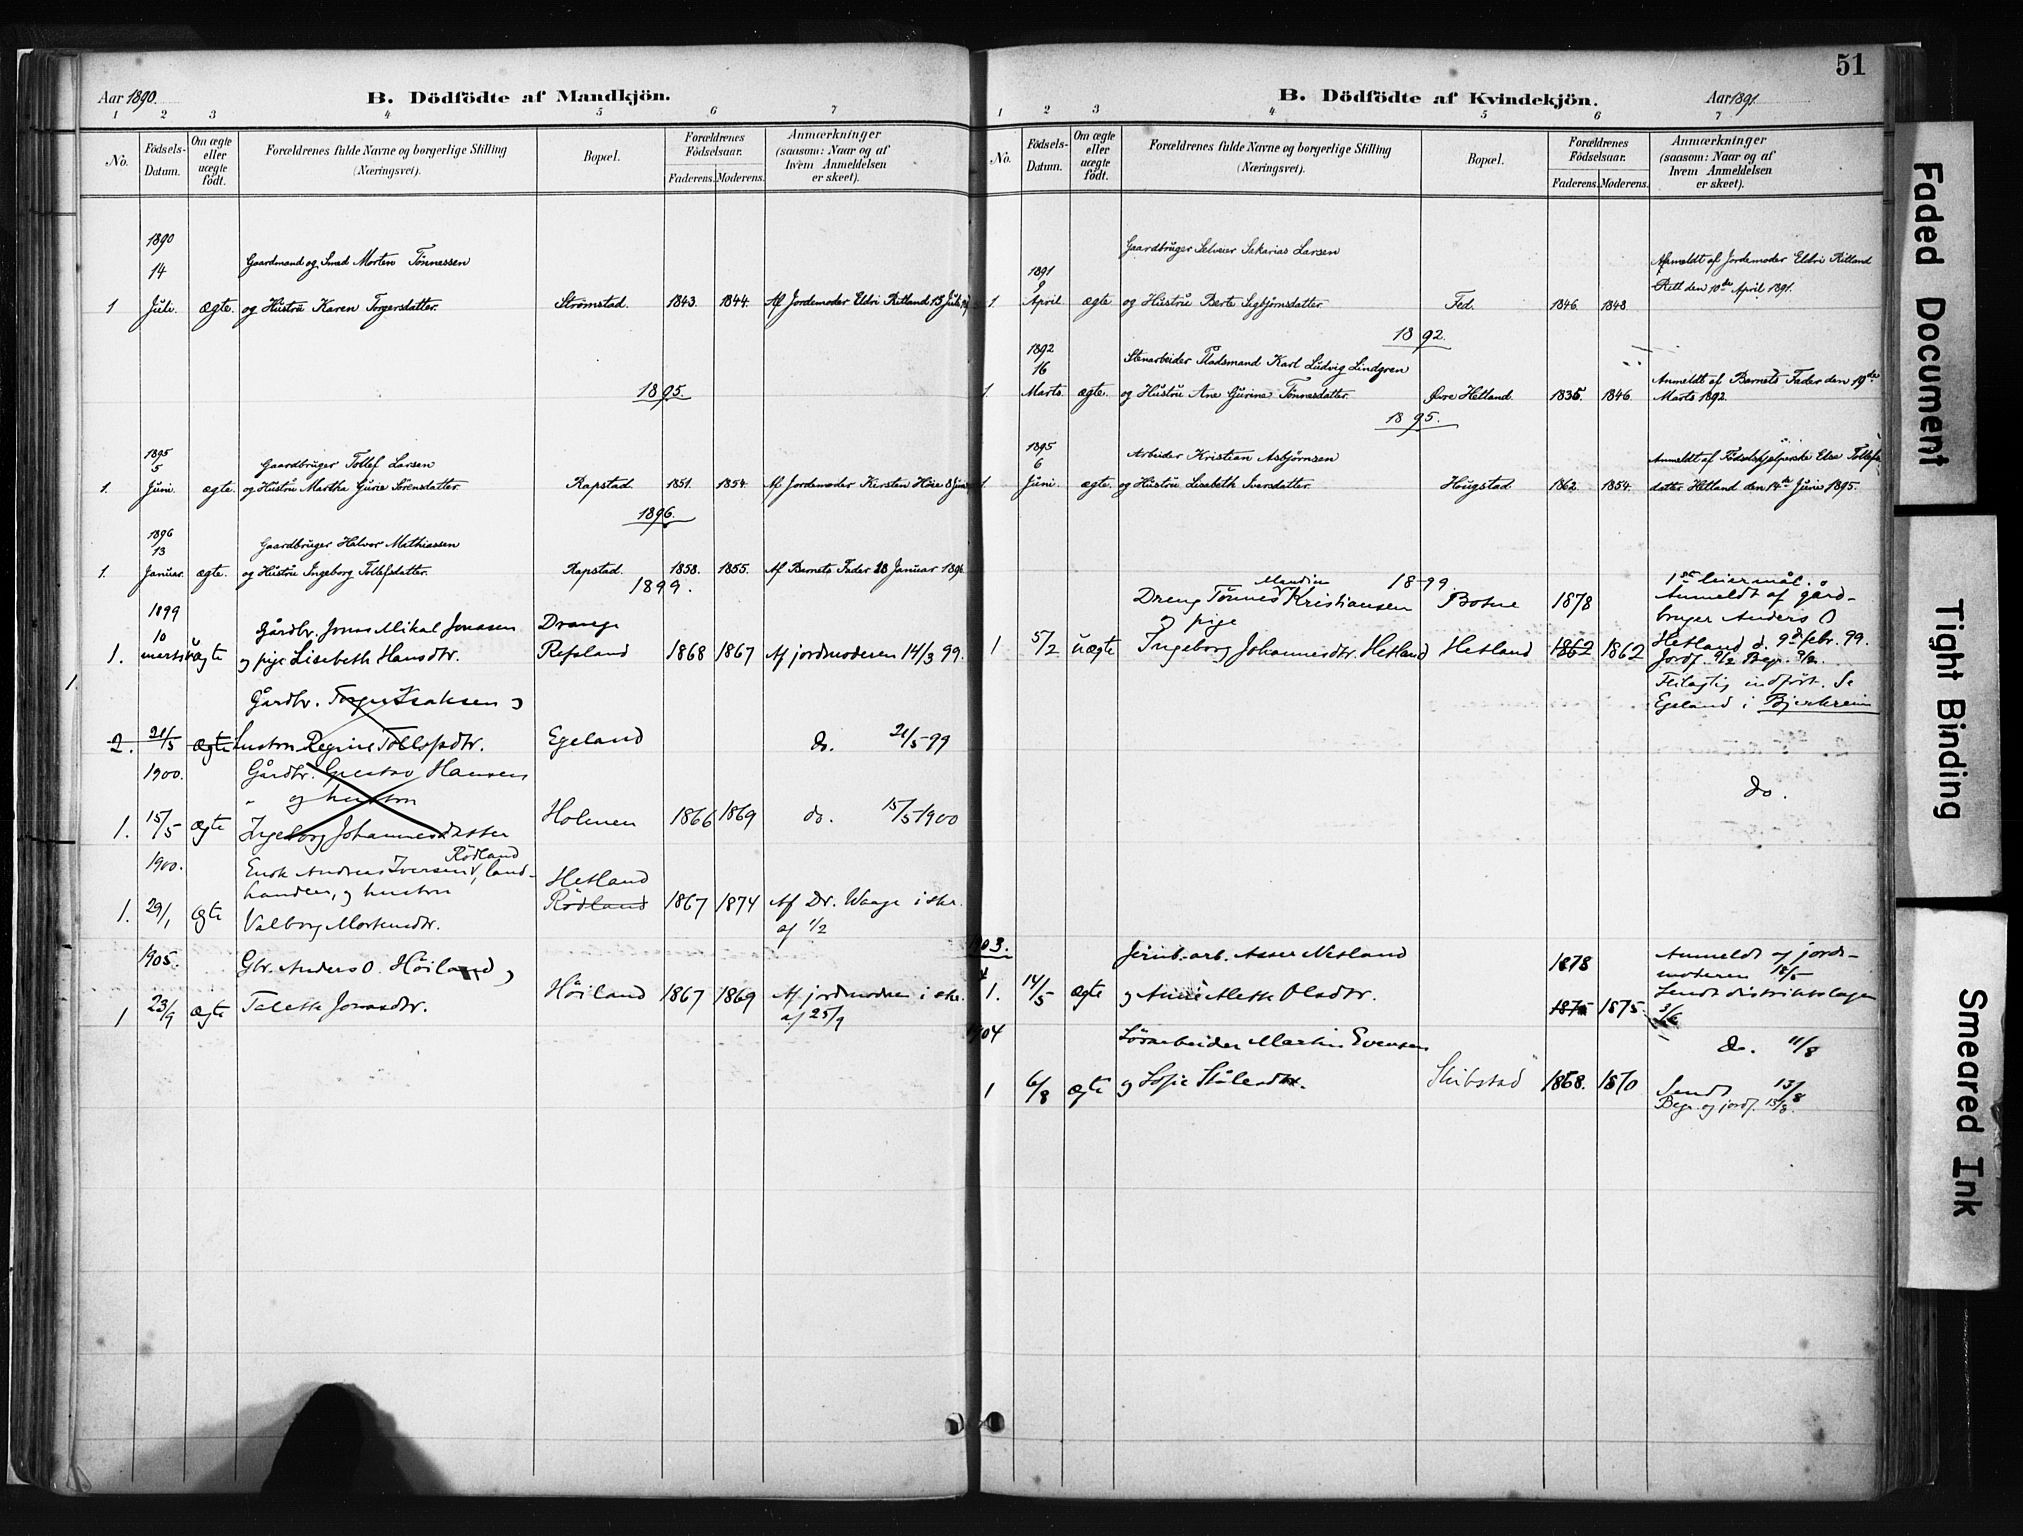 51
Aar 1890.
B. Dödfödte af Mandkjön.
1 2 3 4 5 6 7
No.
Födsels-Datum.
Om ægte eller uægte födt.
Forældrenes fulde Navne og borgerlige Stilling (Næringsvei).
Bopæl.
Forældrenes Födselsaar.
Faderens. Moderens.
Anmærkninger (saasom: Naar og af hvem Anmeldelsen er skeet).
1890
14 Gaardmand og Smed Morten Tönnessen
1 Juli. ægte. og Hustru Karen Torgersdatter. Strömstad. 1843. 1844. Af Jordemoder Eldri Ritland 13 Juli
1895.
1895
5 Gaardbruger Tollef Larsen
1. Juni. ægte. og Hustru Martha Gurie Sörensdatter. Rapstad. 1851. 1854. Af Jordemoder Kirsten Höie 8 Juni
1896.
1896
13 Gaardbruger Halvor Mathiassen
1. Januar. ægte. og Hustru Ingeborg Tollefsdatter. Rapstad. 1858. 1855. Af Barnets Fader 28 Januar 1896
1899.
1899
10 Gårdbr. Jonas Mikal Jonassen Drange
1. marts uægte og pige Lisebeth Hansdtr. Refsland 1868 1867 Af jordmoderen 14/3 99.
Gårdbr. Torger Isaksen og
2. 21/5 ægte hustru Regine Tollefsdtr. Egeland do. 21/5 99
1900. Gårdbr. Gustav Hansen
" og hustru
1. 15/5 ægte Ingeborg Johannesdatter Holmen 1866 1869 do. 15/5 1900
1900. Rödland
Enok Andreas Iversen, land-
handler, og hustru Hetland
1. 29/1 ægte Valborg Mortensdtr. Rödland 1867 1874 Af Dr. Waage i skr.
af 1/2
1905. Gbr. Anders O. Höiland og
1 23/9 ægte Talette Jonasdtr. Höiland 1867 1869 Af jordmoderen i skr.
af 25/9
B. Dödfödte af Kvindekjön.
Aar 1891.
1 2 3 4 5 6 7
No.
Födsels-Datum.
Om ægte eller uægte födt.
Forældrenes fulde Navne og borgerlige Stilling (Næringsvei).
Bopæl.
Forældrenes Födselsaar.
Faderens. Moderens.
Anmærkninger (saasom: Naar og af hvem Anmeldelsen er skeet).
Gaardbruger Selveier Sakarias Larsen
1891 Anmeldt af Jordemoder Eldri Ritland
9 den 10de April 1891.
1. April ægte og Hustru Berte Sigbjörnsdatter Fed. 1846. 1848
1892.
1892
16 Stenarbeider Pladsmand Karl Ludvig Lindgren
1. Marts. ægte. og Hustru Ane Gurine Tönnesdatter. Övre Hetland. 1835. 1846. Anmeldt af Barnets Fader den 19de
Marts 1892.
1895.
1895
6 Arbeider Kristian Asbjörnsen Anmeldt af Födselshjelperske Elsa Tollefs
1. Juni ægte. og Hustru Lisabeth Iversdatter. Hougstad. 1862. 1854. datter Hetland den 14de Juni 1895.
1899.
Mandius 1ste leiermål.
Dreng Tönnes Kristiansen Botne 1878 Anmeldt af gård-
og pige bruger Anders O
1 5/2 uægte Ingeborg Johannesdtr. Hetland Hetland 1862 1862 Hetland d. 9d febr. 99.
Feilagtig indfört. Se
Egeland i Bjerkreim
do.
1903. Jernb. arb. Aser Netland 1878 Anmeldt af jord-
moderen 18/5
1. 14/5 ægte og Anne Alette Olsdtr. 1875 1875 Sendt distriktslægen
3/6
1904 Lösarbeider Martin Evensen do. 11/8
1 6/8 ægte og Sofie Ståledtr. Skibstad 1868. 1870 Sendt 13/8
Begr. og jordf. 13/8.
Faded Document
Tight Binding
Smeared Ink